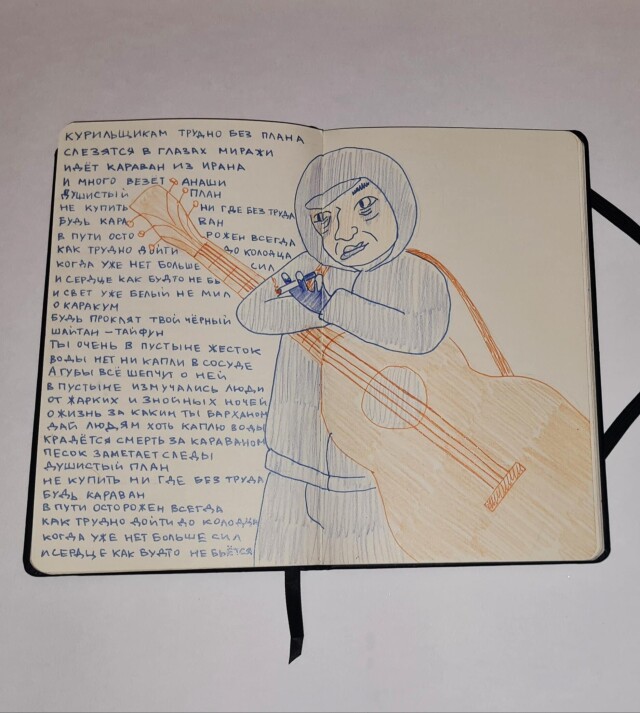 КУРИЛЬЩИКАМ ТРУДНО БЕЗ ПЛАНА
СЛЕЗЯТСЯ В ГЛАЗАХ МИРАЖИ
ИДЁТ КАРАВАН ИЗ ИРАНА
И МНОГО ВЕЗЕТ АНАШИ
ДУШИСТЫЙ ПЛАН
НЕ КУПИТЬ НИ ГДЕ БЕЗ ТРУДА
БУДЬ КАРА ВАН
В ПУТИ ОСТО РОЖЕН ВСЕГДА
КАК ТРУДНО ДОЙТИ ДО КОЛОДЦА
КОГДА УЖЕ НЕТ БОЛЬШЕ СИЛ
И СЕРДЦЕ КАК БУДТО НЕ БЬ
И СВЕТ УЖЕ БЕЛЫЙ НЕ МИЛ
О КАРАКУМ
БУДЬ ПРОКЛЯТ ТВОЙ ЧЁРНЫЙ
ШАЙТАН – ТАЙФУН
ТЫ ОЧЕНЬ В ПУСТЫНЕ ЖЕСТОК
ВОДЫ НЕТ НИ КАПЛИ В СОСУДЕ
А ГУБЫ ВСЁ ШЕПЧУТ О НЕЙ
В ПУСТЫНЕ ИЗМУЧАЛИСЬ ЛЮДИ
ОТ ЖАРКИХ И ЗНОЙНЫХ НОЧЕЙ
О ЖИЗНЬ ЗА КАКИМ ТЫ БАРХАНОМ
ДАЙ ЛЮДЯМ ХОТЬ КАПЛЮ ВОДЫ
КРАДЁТСЯ СМЕРТЬ ЗА КАРАВАНОМ
ПЕСОК ЗАМЕТАЕТ СЛЕДЫ
ДУШИСТЫЙ ПЛАН
НЕ КУПИТЬ НИ ГДЕ БЕЗ ТРУДА
БУДЬ КАРАВАН
В ПУТИ ОСТОРОЖЕН ВСЕГДА
КАК ТРУДНО ДОЙТИ ДО КОЛОДЦА
КОГДА УЖЕ НЕТ БОЛЬШЕ СИЛ
И СЕРДЦЕ КАК БУДТО НЕ БЬЁТСЯ